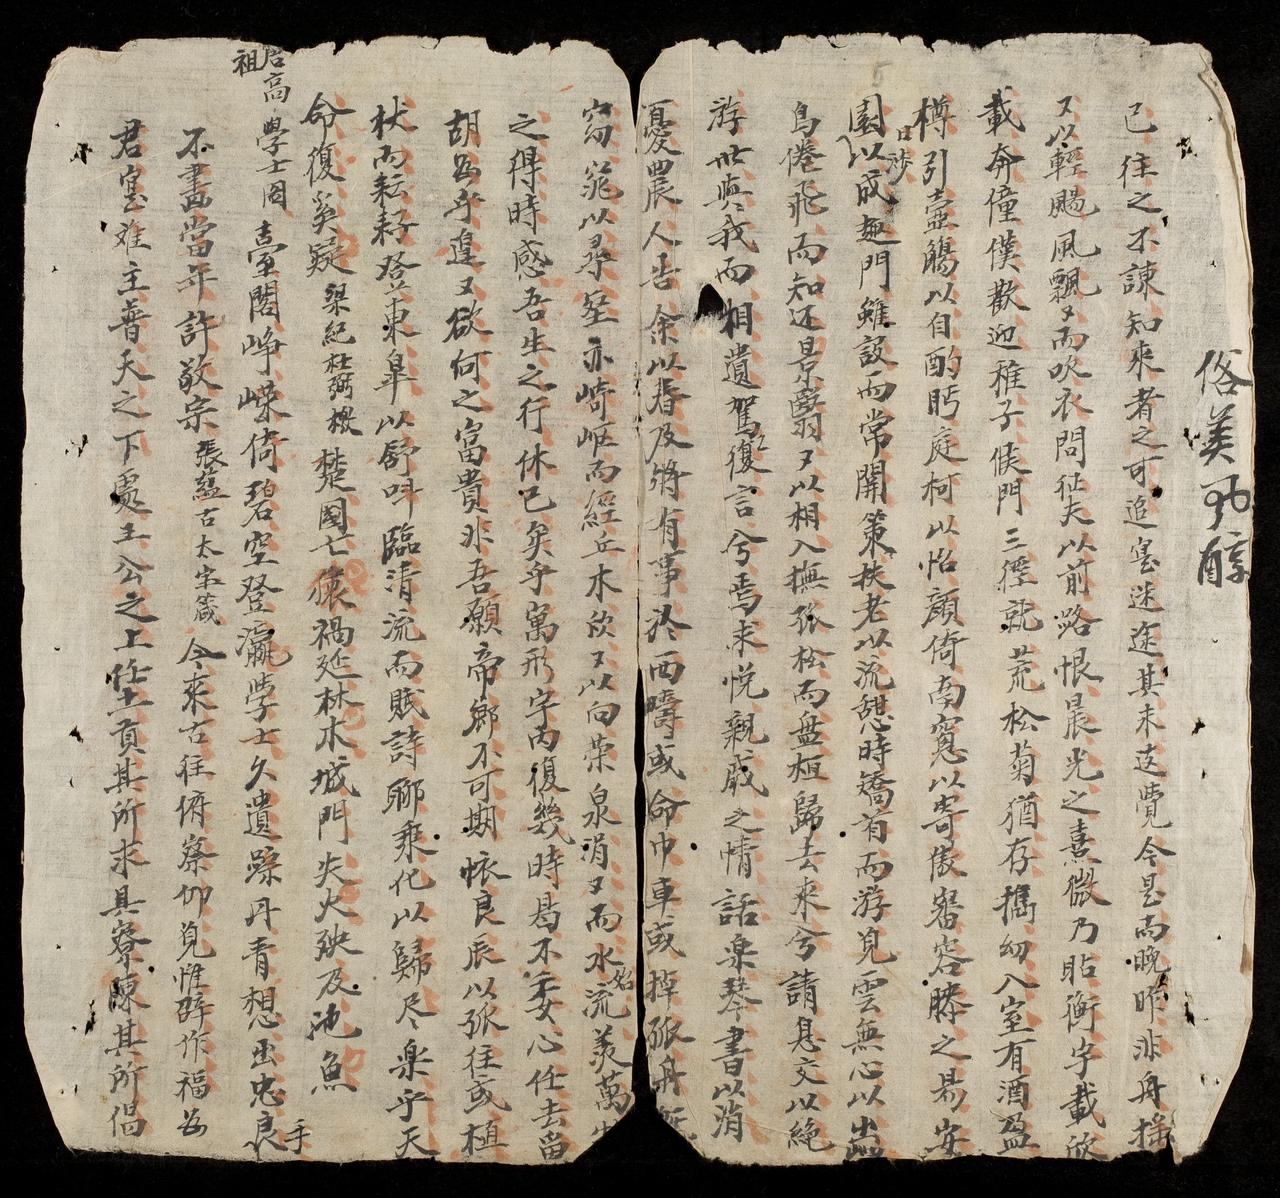 俗美風醇
已往之不諫知來者之可追寔迷途其未远覺今是而晚昨非舟搖
又以輕颺風飄又而吹衣問征夫以前路恨晨光之熹微乃眙衡宇載欣
載奔僮僕歡迎稚子候門三徑就荒松菊猶存携幼入室有酒盈
樽引壺觴以自酌眄庭柯以怡顏倚南窓以寄傲審容膝之易安
園日涉以成趣門雖設而常關策扶老以流憩時矯首而游覓雲無心以出岫
鳥倦飛而知还景翳又以相入撫孤松而盘桓歸去來兮請息交以絶
游世與我而相遺駕復言兮焉求悦親戚之情話楽琴書以消
憂農人告余以春及將有事於西疇或命巾車或掉孤舟既
窈窕以尋壑亦崎岖而經丘木欣又以向荣泉涓又而水始流羡萬
之得時感吾生之行休已矣乎寓形宇内復幾時曷不委心任去畄
胡爲乎遑又欲何之富貴非吾願帝鄉不可期怅良辰以孤往或植
杖而耘耔登東皋以舒叫臨清流而賦詩聊乘化以歸尽楽乎天
命復奚疑 梁紀杜弼檄 楚國亡猿禍延林木城門失火殃及池魚
唐高祖 學士閣 臺閣崢嶸倚碧空登瀛學士久遺踪丹青想出忠良手
不畵當年許敬宗 張蘊古太宗箴 今來古往俯察仰見惟辟作福爲
君寔难主普天之下處王公之上任土貢其所求具寮陳其所倡